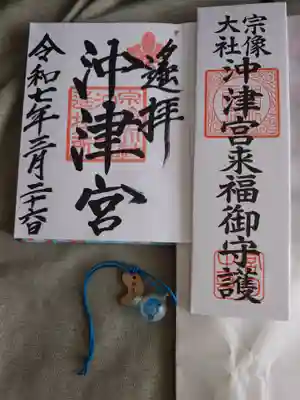 遙拝
沖津宮
令和七年三月二十六日
宗像
大社
沖津宮来福御守護